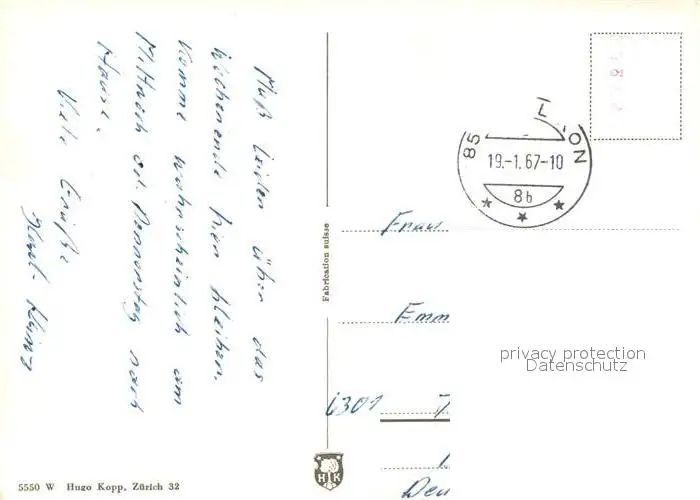 Muß leider über das
Wochenende hier bleiben.
Komme wahrscheinlich am
Mittwoch od. Donnerstag nach
Hause.
Viele Grüße
Karl-Heinz
Fabrication suisse
5550 W Hugo Kopp, Zürich 32
HK
85
19.-1.67-10
8b
Frau
Emm
6301
Deu
privacy protection
Datenschutz